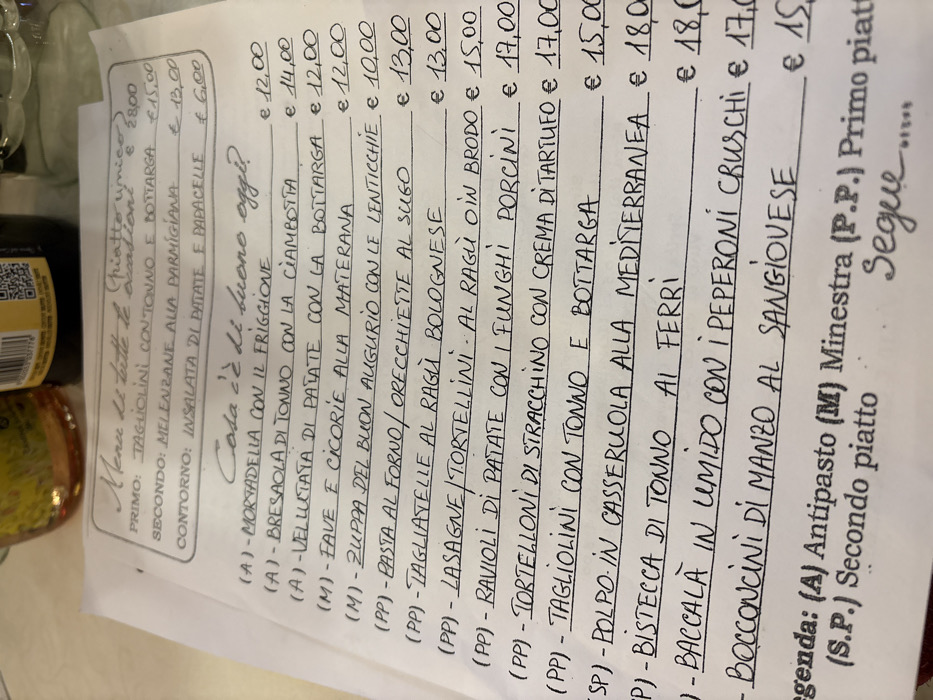 Menu di tutte le occasioni € 28,00
(piatto unico)
PRIMO: TAGLIOLINI CON TONNO E BOTTARGA € 15,00
SECONDO: MELENZANE ALLA PARMIGIANA € 13,00
CONTORNO: INSALATA DI PATATE E PAPACELLE € 6,00
Cosa c'è di buono oggi?
(A) - MORTADELLA CON IL FRIGGIONE € 12,00
(A) - BRESAOLA DI TONNO CON LA CIAMBOTTA € 14,00
(A) - VELLUTATA DI PATATE CON LA BOTTARGA € 12,00
(M) - FAVE E CICORIE ALLA MATERANA € 12,00
(M) - ZUPPA DEL BUON AUGURIO CON LE LENTICCHIE € 10,00
(PP) - PASTA AL FORNO/ORECCHIETTE AL SUGO € 13,00
(PP) - TAGLIATELLE AL RAGÙ BOLOGNESE € 13,00
(PP) - LASAGNE/TORTELLINI - AL RAGÙ O IN BRODO € 15,00
(PP) - RAVIOLI DI PATATE CON I FUNGHI PORCINI € 17,00
(PP) - TORTELLONI DI STRACCHINO CON CREMA DI TARTUFO € 17,00
(PP) - TAGLIOLINI CON TONNO E BOTTARGA € 15,00
SP) - POLPO IN CASSERUOLA ALLA MEDITERRANEA € 18,0
P) - BISTECCA DI TONNO AI FERRI € 18,0
) - BACCALÀ IN UMIDO CON I PEPERONI CRUSCHI € 17,0
- BOCCONCINI DI MANZO AL SANGIOVESE € 15,
genda: (A) Antipasto (M) Minestra (P.P.) Primo piatt
(S.P.) Secondo piatto
Segue......